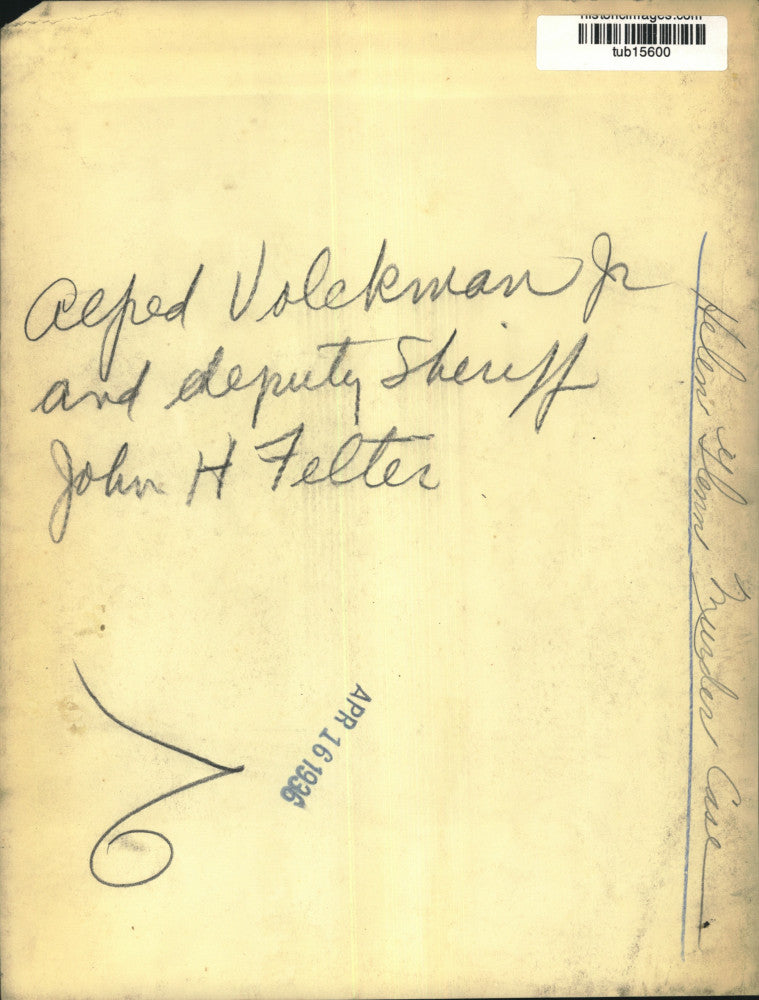 historicimages.com
tub15600
Alfred Volckman Jr
and deputy Sheriff
John H Felter
Helen Glenn Murder Case
APR 16 1936